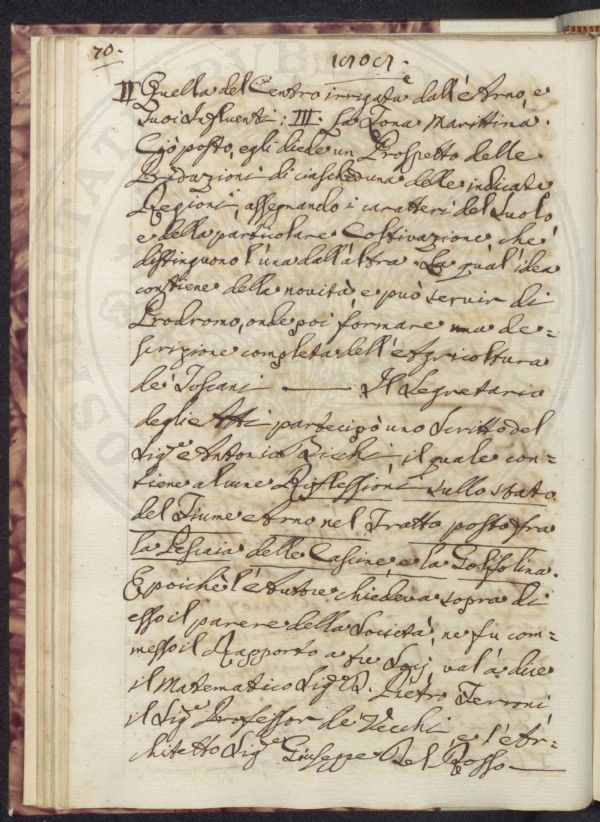 70.
II Quella del Centro irrigata dall'Arno, e
Suoi Influenti: III. La Zona Marittima.
Ciò posto, egli diede un Prospetto delle
Produzioni di ciascheduna delle indicate
Regioni, assegnando i caratteri del Suolo
e della particolare Coltivazione che
distinguono l'una dall'altra. La qual'idea
contiene della novità, e può servir di
Prodromo, onde poi formare una de=
scrizione completa dell'Agricoltura
de' Toscani ——— Il Segretario
degli Atti partecipò uno Scritto del
Sig.re Antonio il quale con=
tiene alcune Riflessioni sullo stato
del Fiume Arno nel Tratto posto fra
la Pescaia delle Cascine, e la Golfolina.
E poichè l'Autore chiedeva sopra di
esso il parere della Società, ne fu com=
messo il Rapporto a tre Socj, val'a dire
il Matematico Sig.re D. Pietro Ferroni,
il Sig.re Professor de' Vecchi, e l'Ar=
chitetto Sig.re Giuseppe Del Rosso —